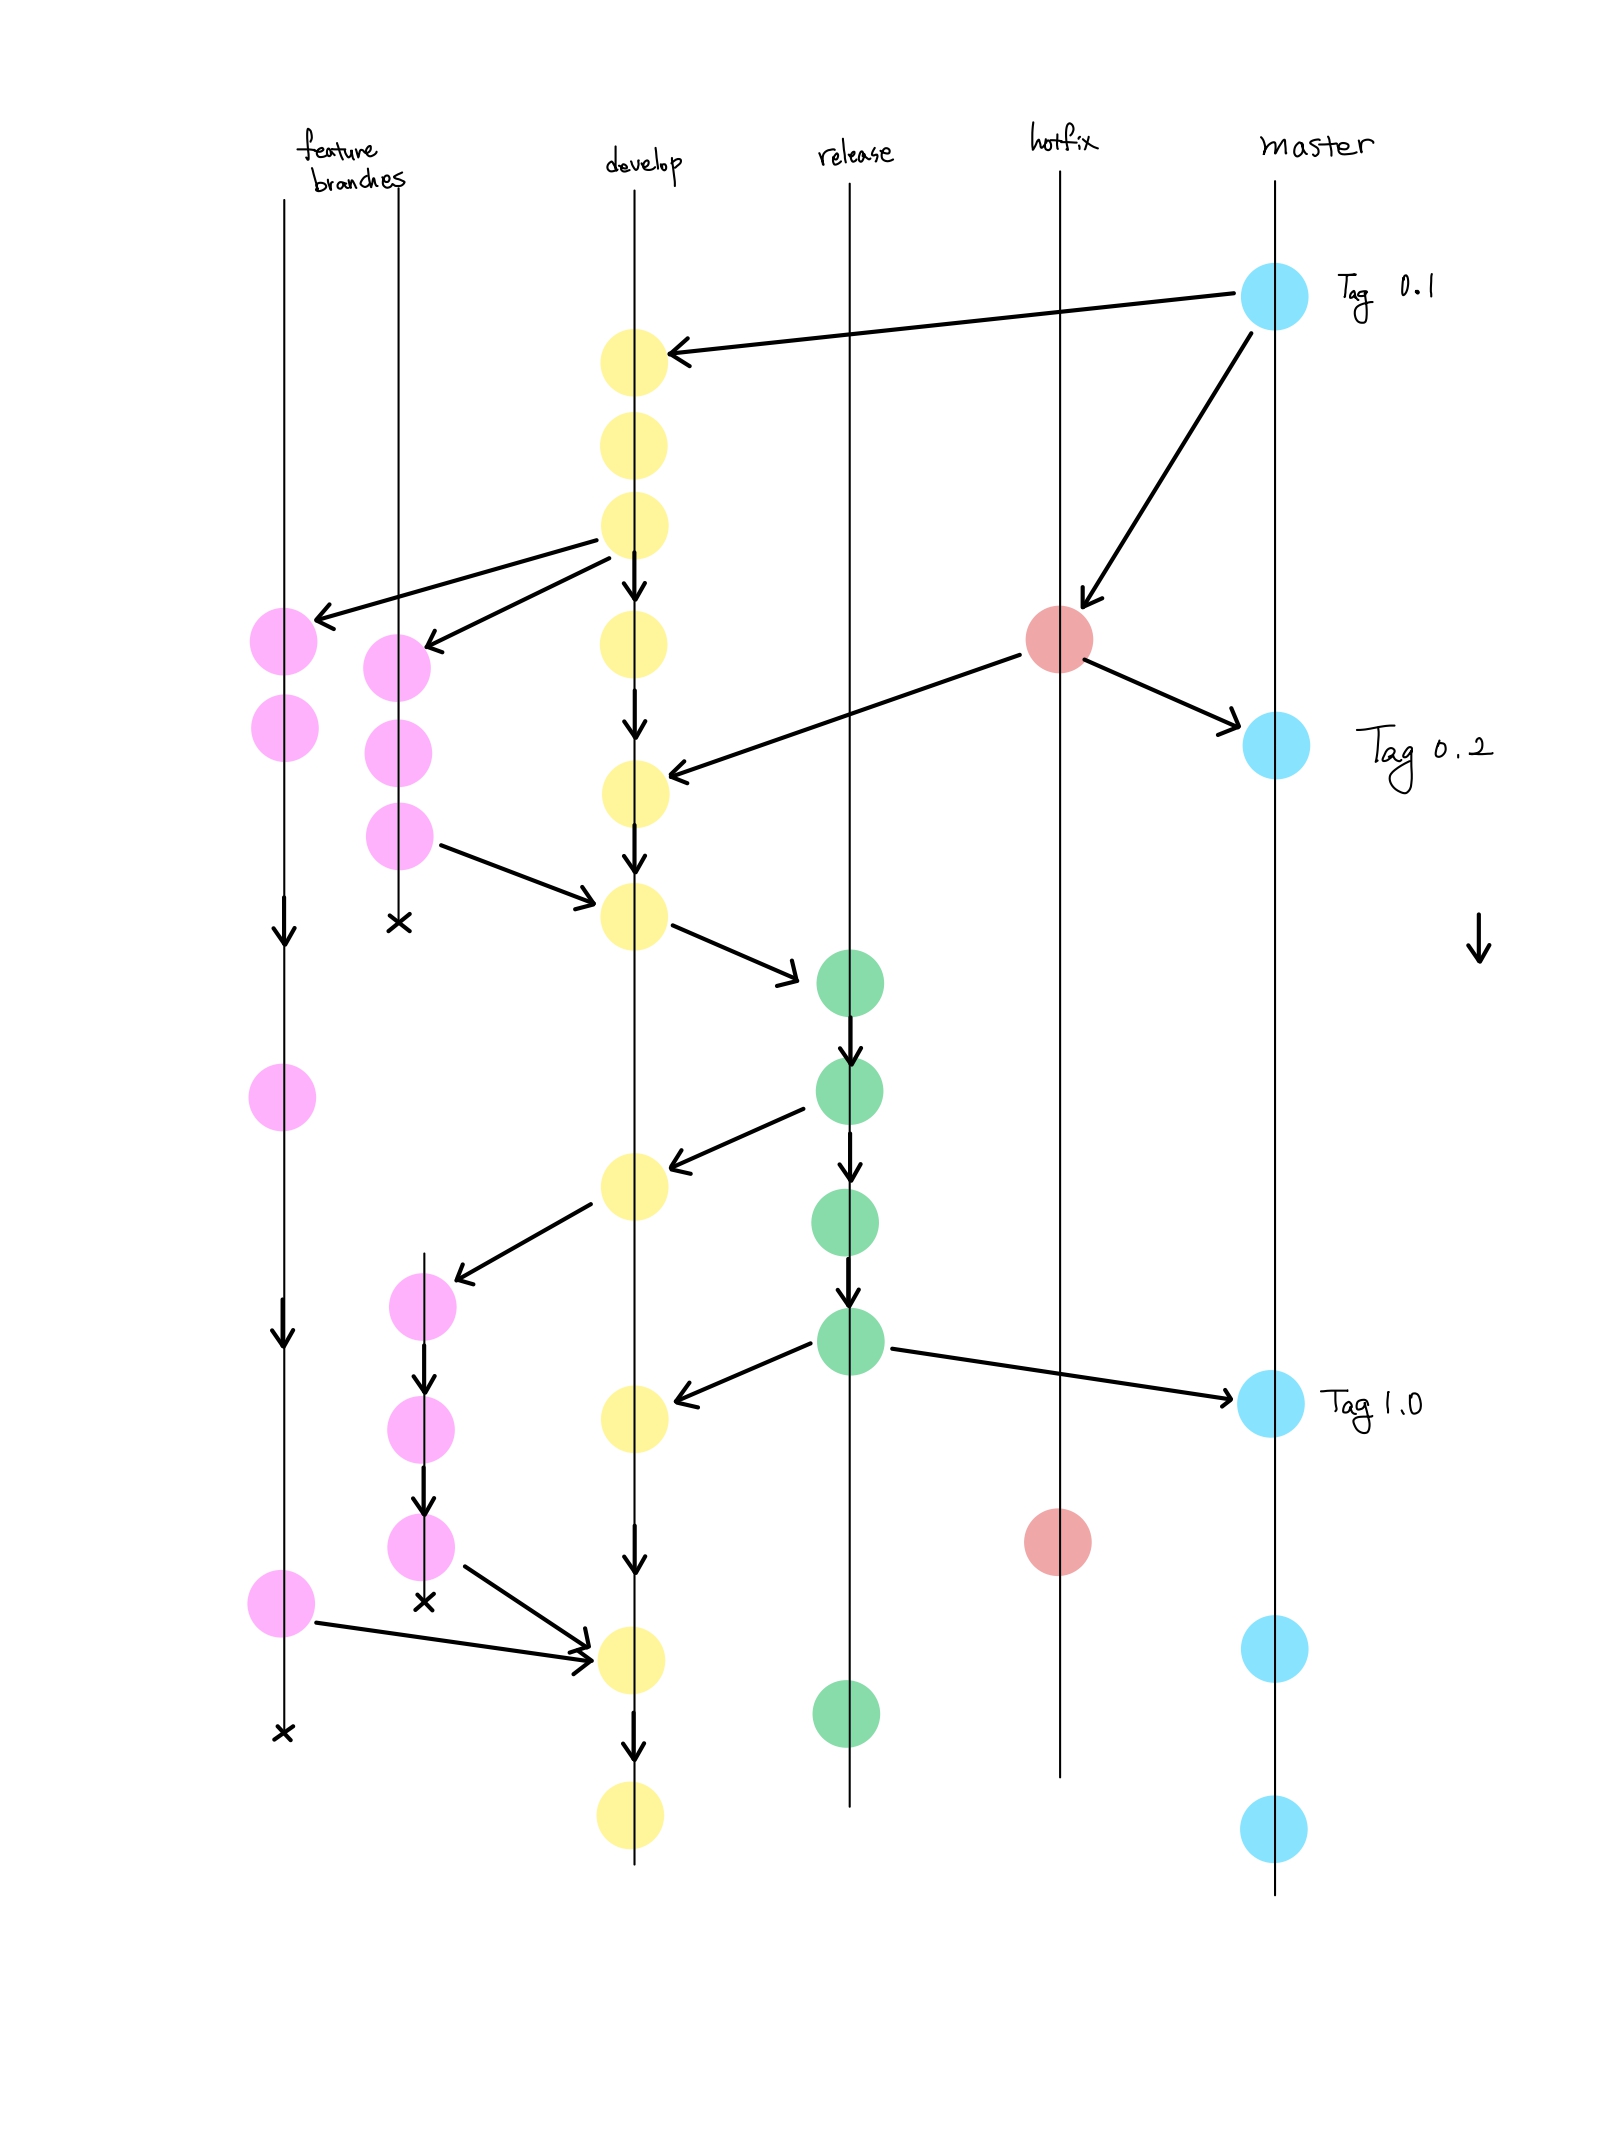 feature
branches
develop
release
hotfix
master
Tag 0.1
Tag 0.2
Tag 1.0